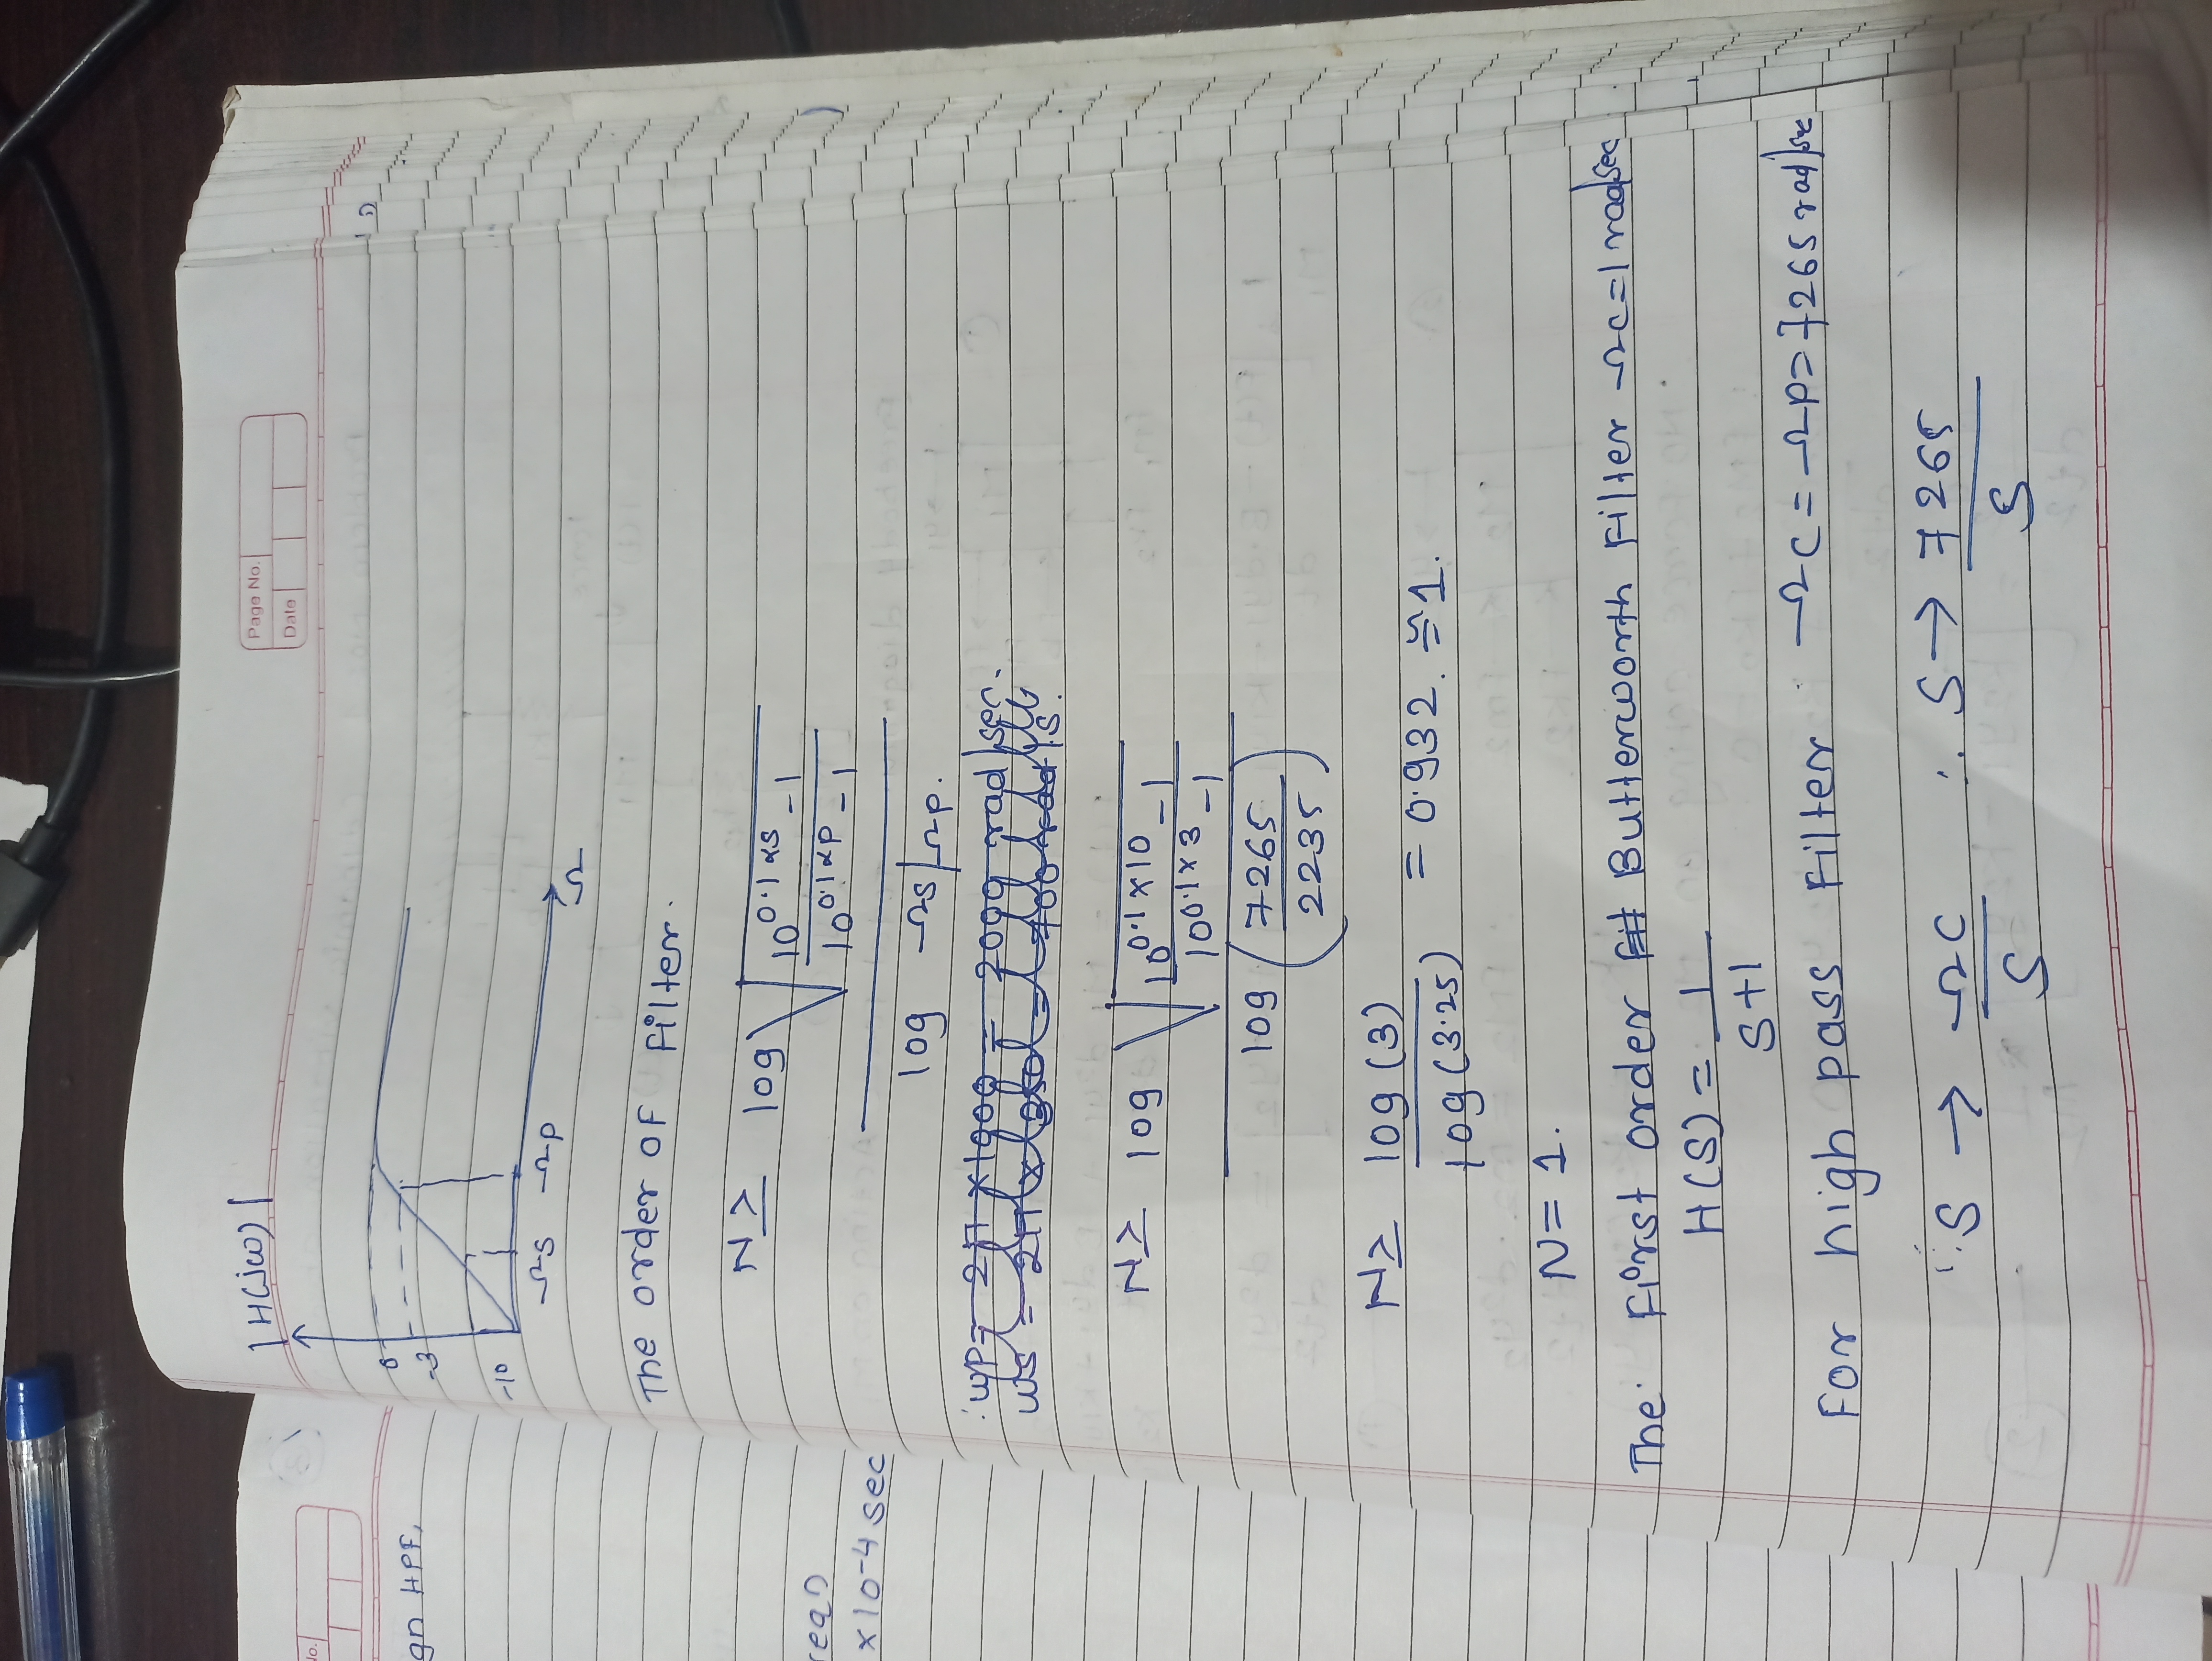 No.
gn HPF,
x10-4 sec
Page No.
Date
|H(jω)|
0
-3
-10
Ωs Ωp
Ω
The order of Filter.
N ≥ log √ 10^0.1αs -1 / 10^0.1αp -1
log Ωs/Ωp.
∴ wp= 2π x1000 = 2000 rad/sec.
ws = 2π x 350 = 700 rad/s.
N≥ log √ 10^0.1x10 -1 / 10^0.1x3 -1
log (7265/2235)
N≥ log(3)
log(3.25) = 0.932. ≌1.
N= 1.
The First order Butterworth Filter Ωc=1 rad/sec
H(S) = 1
S+1
For high pass Filter Ωc = Ωp= 7265 rad/sec
∵ S → Ωc ∴ S → 7265
S S